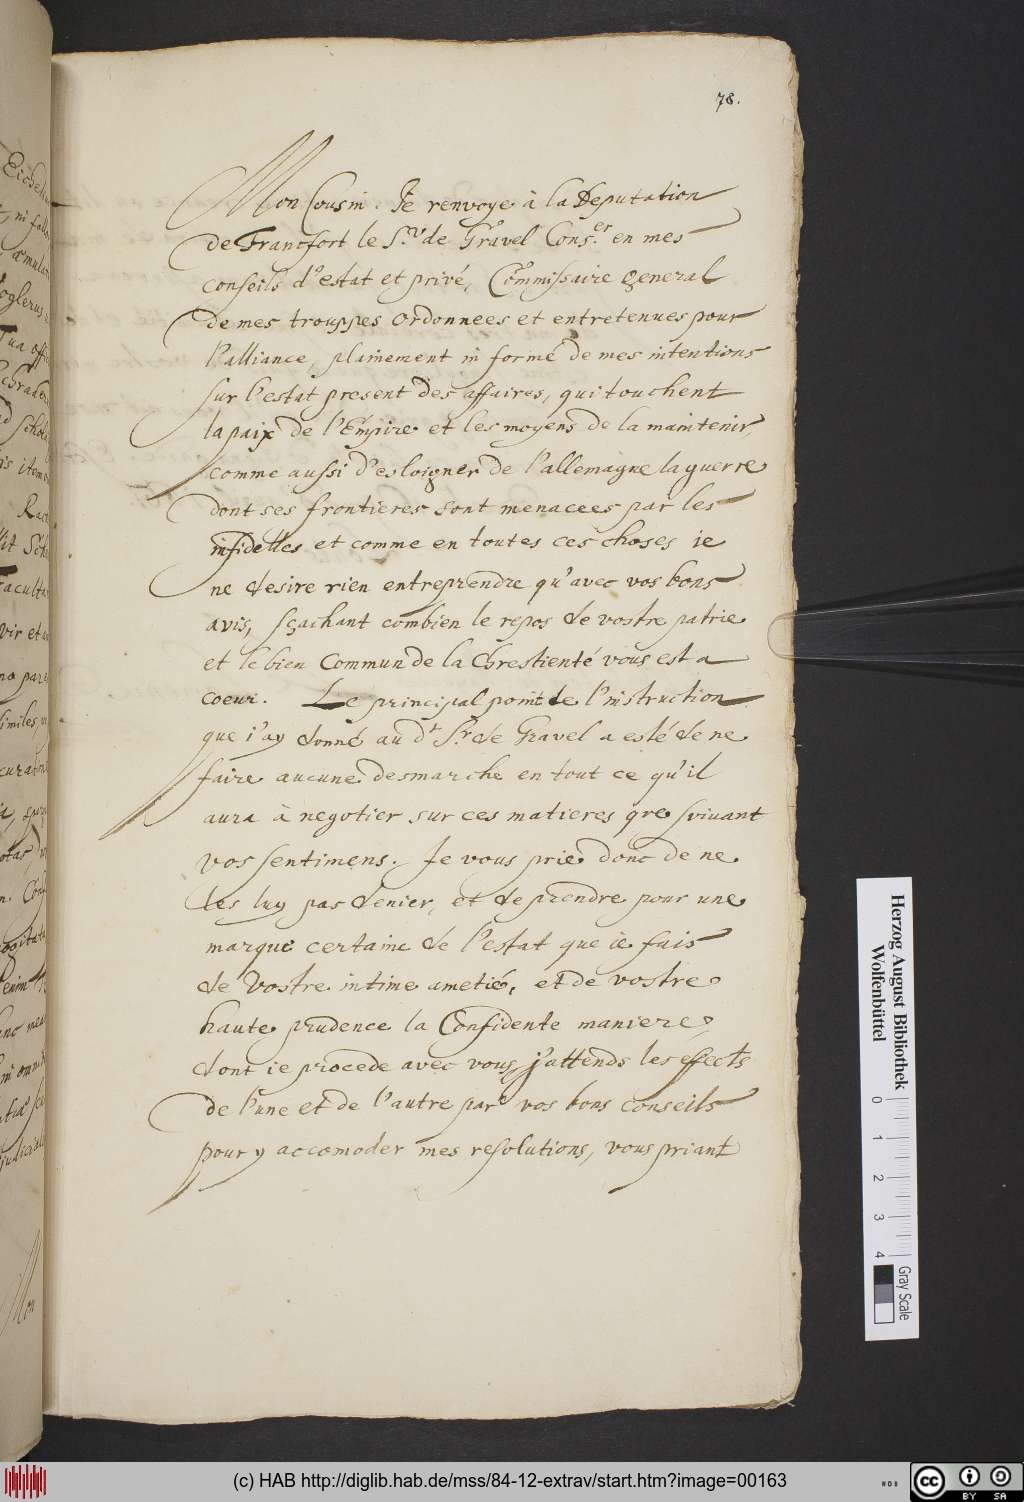 78.
Mon Cousin. Je renvoye à la Deputation
de Francfort le Sr. de Gravel Conser. en mes
conseils d'estat et privé, Commissaire general
de mes trouppes ordonnees et entretenues pour
l'alliance, plainement in formé de mes intentions
sur l'estat present des affaires, qui touchent
la paix de l'Empire et les moyens de la maintenir,
comme aussi d'esloigner de l'allemagne la guerre
dont ses frontieres sont menacees par les
infidelles et comme en toutes ces choses ie
ne desire rien entreprendre qu'avec vos bons
avis, sçachant combien le repos de vostre patrie
et le bien Commun de la Chrestienté vous est a
coeur. Le principal point de l'instruction
que i'ay donné au dt. Sr. de Gravel a esté de ne
faire aucune desmarche en tout ce qu'il
aura à negotier sur ces matieres qre suivant
vos sentimens. Je vous prie donc de ne
les luy pas denier, et de prendre pour une
marque certaine de l'estat que ie fais
de Vostre intime ametié, et de vostre
haute prudence la Confidente maniere,
dont ie procede avec vous, j'attends les effects
de l'une et de l'autre par vos bons conseils
pour y accomoder mes resolutions, vous priant
Herzog August Bibliothek
Wolfenbüttel
0 1 2 3 4
Gray Scale
(c) HAB http://diglib.hab.de/mss/84-12-extrav/start.htm?image=00163
cc BY SA